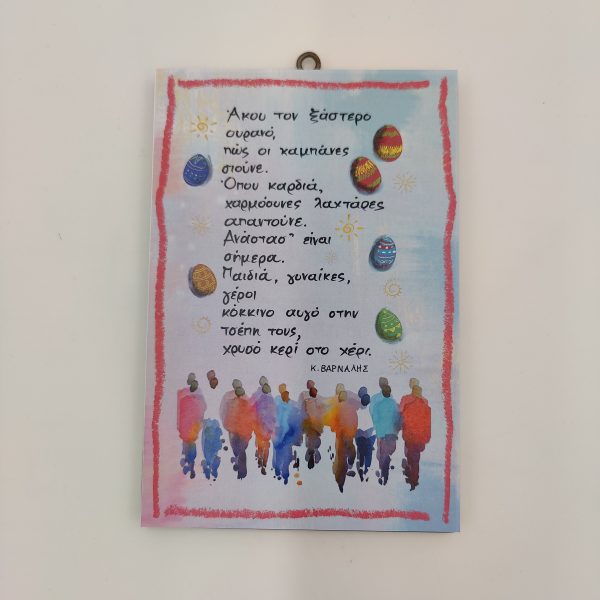 Άκου τον ξάστερο
ουρανό,
πώς οι καμπάνες
σιούνε.
Όπου καρδιά,
χαρμόσυνες λαχτάρες
απαντούνε.
Ανάστασ' είναι
σήμερα.
Παιδιά, γυναίκες,
γέροι
κόκκινο αυγό στην
τσέπη τους,
χρυσό κερί στο χέρι.
Κ. ΒΑΡΝΑΛΗΣ